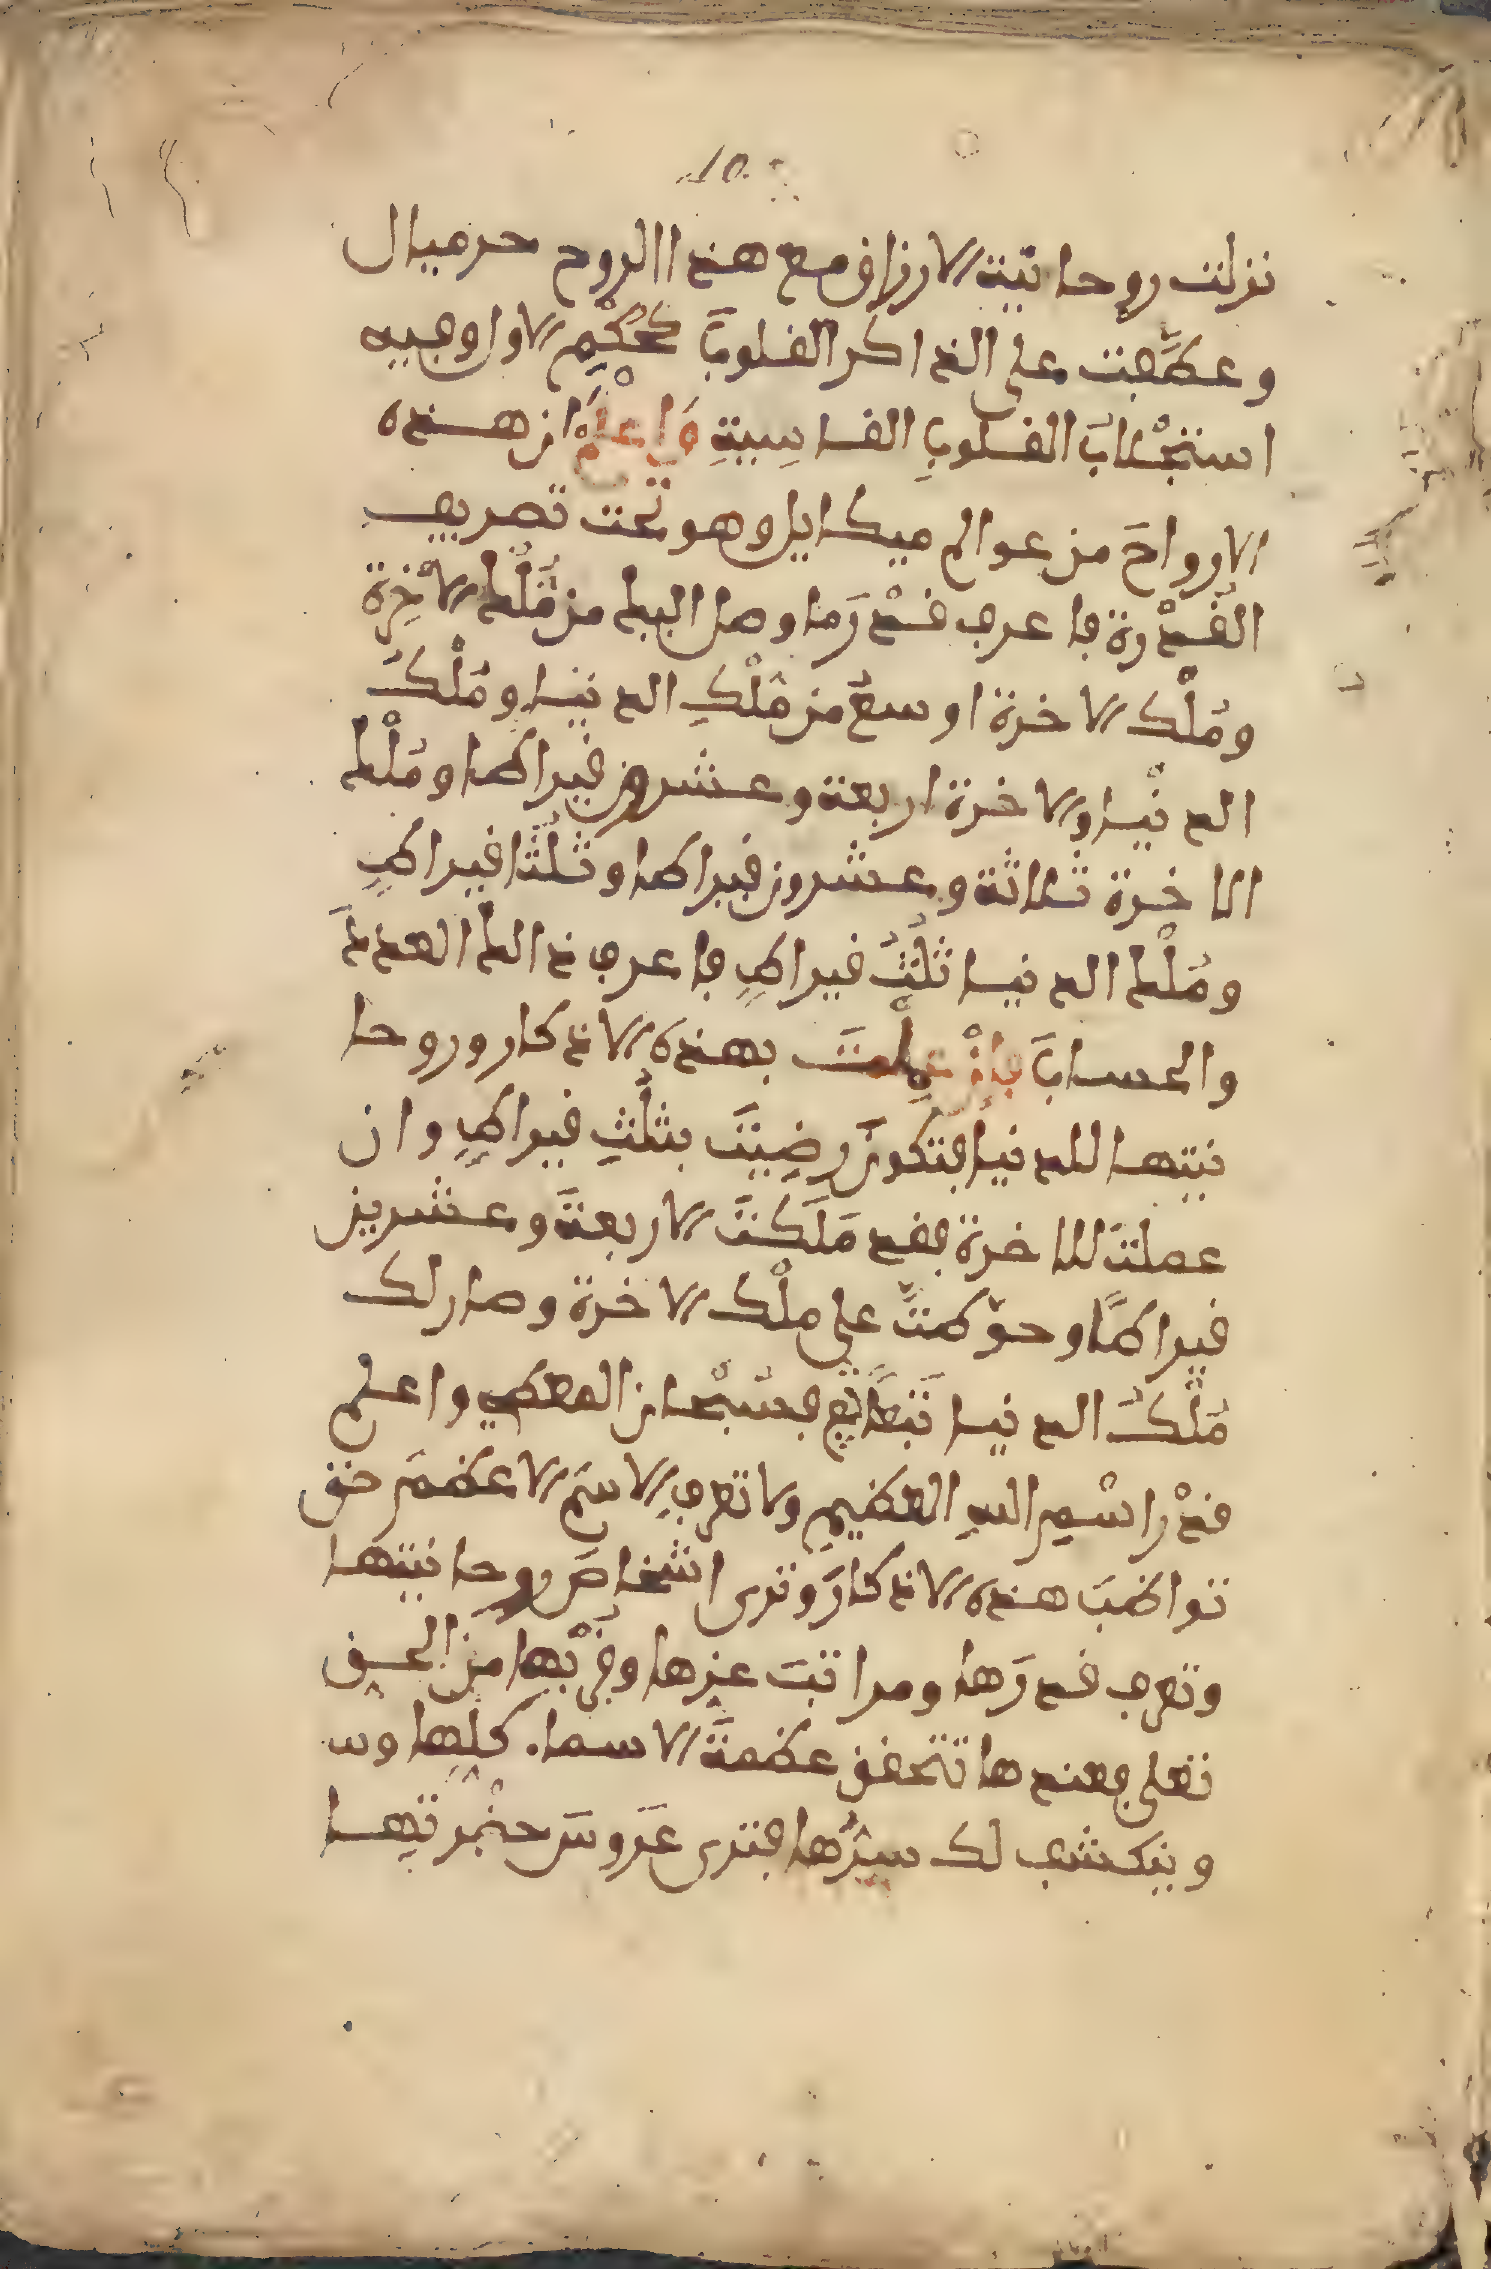 10
نزلت روحانية الارزاق مع هذا الروح حرميال
وعطَّفت على الذاكر القلوبَ بحُكْمِ الاول وفيه
استجْلابَ القلوبِ القاسِيةِ وَاعْلَمْ ان هذه
الارواحَ من عوالم ميكايل وهو تحت تصريف
القُدْرة فاعرف قدْرَ ما وصل اليك من مُلْك الاخِرة
ومُلْك الاخرة اوسعُ من مُلْكِ الدنيا ومُلْكُ
الدنْيا والاخرة اربعة وعشرون قيراطا ومُلْك
الاخرة ثلاثة وعشرون قيراطا وثُلُثا قيراطٍ
ومُلْك الدنيا ثُلُثُ قيراطٍ فاعرف ذالك العددَ
والحسابَ فإنْ عمِلْتَ بهذه الاذكار وروحا
نيتها للدنيا فتكونُ رضِيتَ بثلُثِ قيراطٍ وان
عملتَ للاخرة فقد مَلَكْتَ الاربعةَ وعشرين
قيراطًا وحوّطتَّ على ملْك الاخرة وصار لك
مُلْكُ الدنيا تَبَعًا فسُبْحان المعطي واعلم
قدْرَ اسْمِ اللهِ العظيمِ ولا تعرفِ الاسمَ الاعظمَ حتى
تواظبَ هذه الاذكارَ وترى اشخاصَ روحانيتها
وتعرف قدرَها ومراتبَ عزها وقُرْبها من الحق
تعلى فعندها تتحقق عظمةَ الاسماء كلها و
وينكشف لك سِرُّها فترى عَرُوسَ حضْرتِها